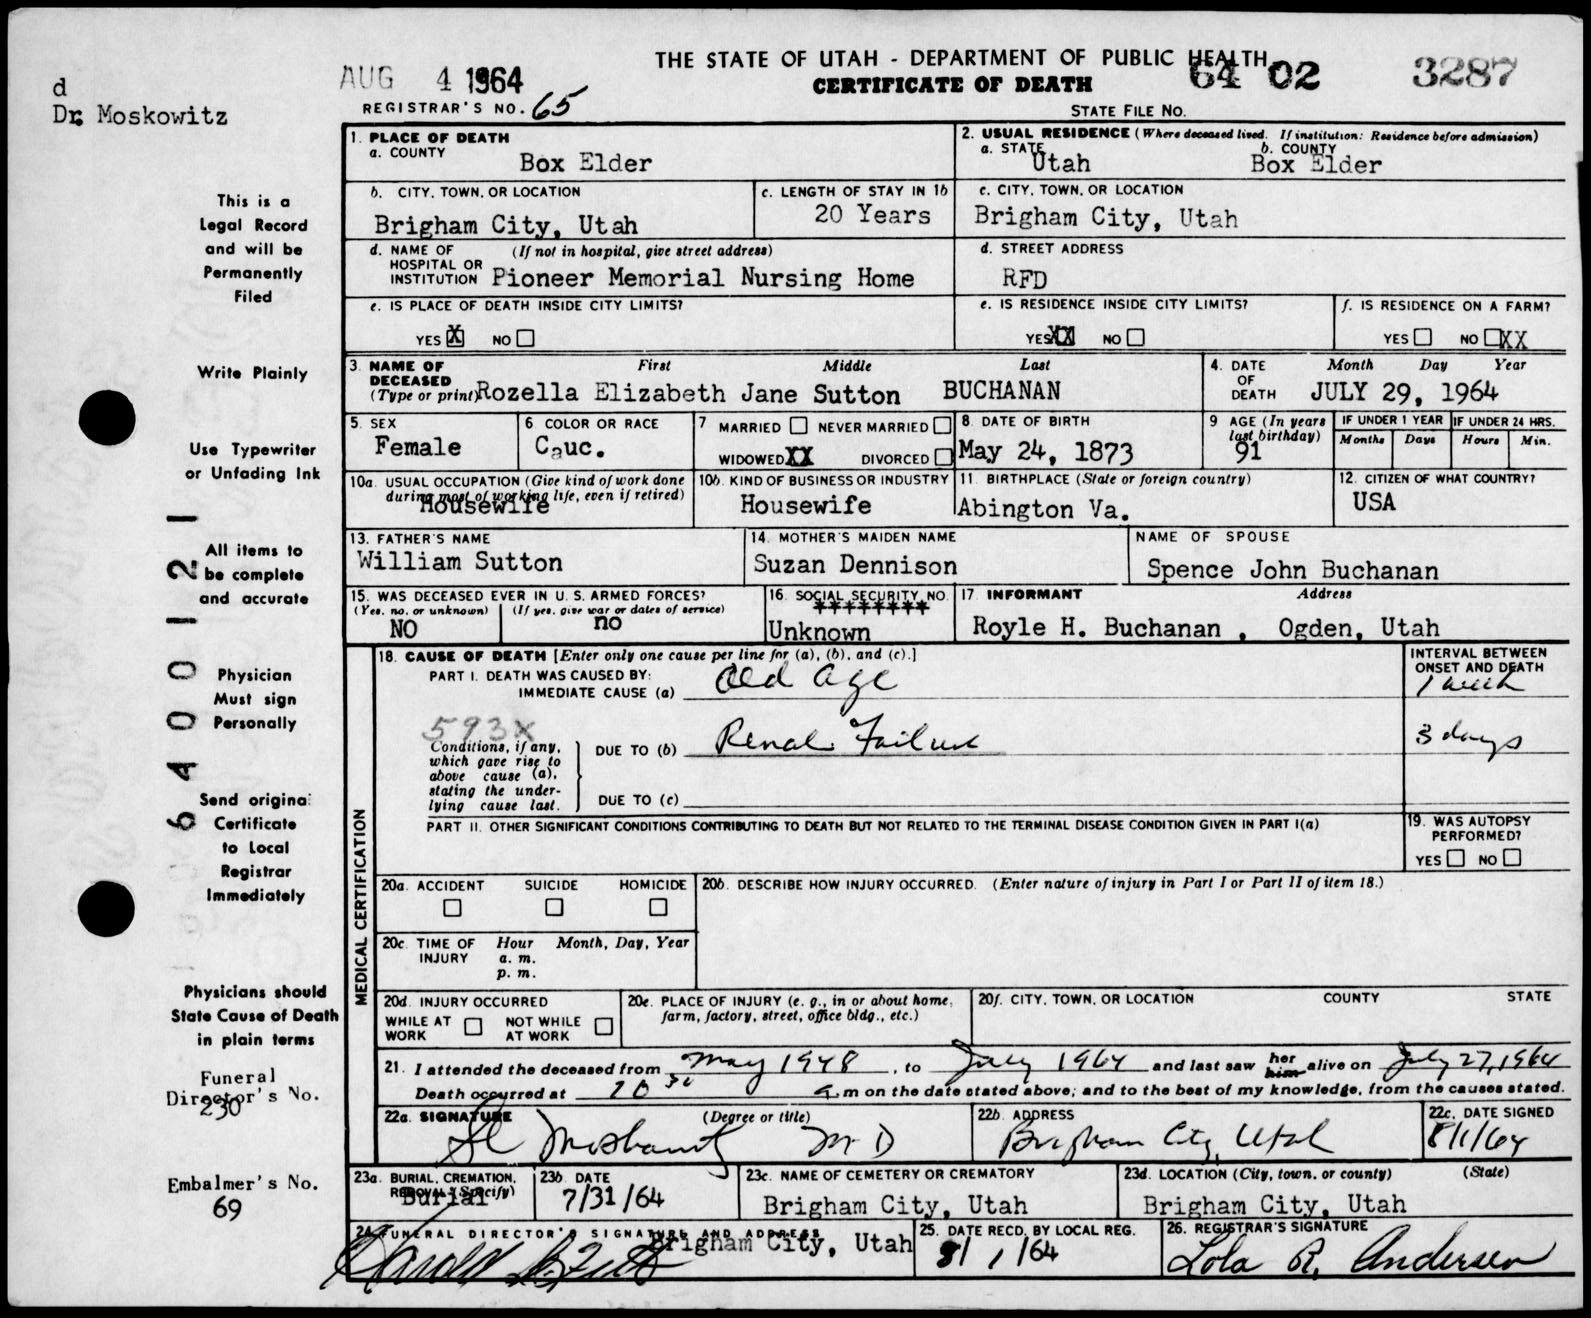 d
Dr. Moskowitz
AUG 4 1964
THE STATE OF UTAH - DEPARTMENT OF PUBLIC HEALTH
CERTIFICATE OF DEATH
64 02 3287
REGISTRAR'S NO. 65
STATE FILE NO.
This is a
Legal Record
and will be
Permanently
Filed
Write Plainly
Use Typewriter
or Unfading Ink
All items to
be complete
and accurate
Physician
Must sign
Personally
Send original
Certificate
to Local
Registrar
Immediately
Physicians should
State Cause of Death
in plain terms
Funeral
Director's No.
230
Embalmer's No.
69
64 00 1 21
1. PLACE OF DEATH
a. COUNTY
Box Elder
2. USUAL RESIDENCE (Where deceased lived. If institution: Residence before admission)
a. STATE b. COUNTY
Utah Box Elder
b. CITY, TOWN, OR LOCATION
Brigham City, Utah
c. LENGTH OF STAY IN 1b
20 Years
c. CITY, TOWN, OR LOCATION
Brigham City, Utah
d. NAME OF HOSPITAL OR INSTITUTION (If not in hospital, give street address)
Pioneer Memorial Nursing Home
d. STREET ADDRESS
RFD
e. IS PLACE OF DEATH INSIDE CITY LIMITS?
YES X NO
e. IS RESIDENCE INSIDE CITY LIMITS?
YES XX NO
f. IS RESIDENCE ON A FARM?
YES NO XX
3. NAME OF DECEASED (Type or print) First Middle Last
Rozella Elizabeth Jane Sutton BUCHANAN
4. DATE OF DEATH Month Day Year
JULY 29, 1964
5. SEX
Female
6. COLOR OR RACE
Cauc.
7 MARRIED NEVER MARRIED
WIDOWED XX DIVORCED
8. DATE OF BIRTH
May 24, 1873
9 AGE (In years last birthday)
91
IF UNDER 1 YEAR IF UNDER 24 HRS.
Months Days Hours Min.
10a. USUAL OCCUPATION (Give kind of work done during most of working life, even if retired)
Housewife
10b. KIND OF BUSINESS OR INDUSTRY
Housewife
11. BIRTHPLACE (State or foreign country)
Abington Va.
12. CITIZEN OF WHAT COUNTRY?
USA
13. FATHER'S NAME
William Sutton
14. MOTHER'S MAIDEN NAME
Suzan Dennison
NAME OF SPOUSE
Spence John Buchanan
15. WAS DECEASED EVER IN U. S. ARMED FORCES?
(Yes, no, or unknown) (If yes, give war or dates of service)
NO no
16. SOCIAL SECURITY NO.
********
Unknown
17. INFORMANT Address
Royle H. Buchanan , Ogden, Utah
MEDICAL CERTIFICATION
18. CAUSE OF DEATH [Enter only one cause per line for (a), (b), and (c).]
INTERVAL BETWEEN ONSET AND DEATH
PART I. DEATH WAS CAUSED BY:
IMMEDIATE CAUSE (a) Old age 1 week
593X
Conditions, if any, which gave rise to above cause (a), stating the underlying cause last.
DUE TO (b) Renal Failure 3 days
DUE TO (c)
PART II. OTHER SIGNIFICANT CONDITIONS CONTRIBUTING TO DEATH BUT NOT RELATED TO THE TERMINAL DISEASE CONDITION GIVEN IN PART I(a)
19. WAS AUTOPSY PERFORMED?
YES NO
20a. ACCIDENT SUICIDE HOMICIDE
20b. DESCRIBE HOW INJURY OCCURRED. (Enter nature of injury in Part I or Part II of item 18.)
20c. TIME OF INJURY Hour Month, Day, Year
a. m.
p. m.
20d. INJURY OCCURRED
WHILE AT WORK NOT WHILE AT WORK
20e. PLACE OF INJURY (e. g., in or about home, farm, factory, street, office bldg., etc.)
20f. CITY, TOWN, OR LOCATION COUNTY STATE
21. I attended the deceased from May 1948, to July 1964 and last saw her him alive on July 27, 1964
Death occurred at 10 30 a.m on the date stated above; and to the best of my knowledge, from the causes stated.
22a. SIGNATURE (Degree or title)
Moskowitz MD
22b. ADDRESS
Brigham City, Utah
22c. DATE SIGNED
8/1/64
23a. BURIAL, CREMATION, REMOVAL (Specify)
Burial
23b. DATE
7/31/64
23c. NAME OF CEMETERY OR CREMATORY
Brigham City, Utah
23d. LOCATION (City, town, or county) (State)
Brigham City, Utah
24. FUNERAL DIRECTOR'S SIGNATURE AND ADDRESS
Harold B. Felt Brigham City, Utah
25. DATE RECD. BY LOCAL REG.
8/1/64
26. REGISTRAR'S SIGNATURE
Lola R. Andersen